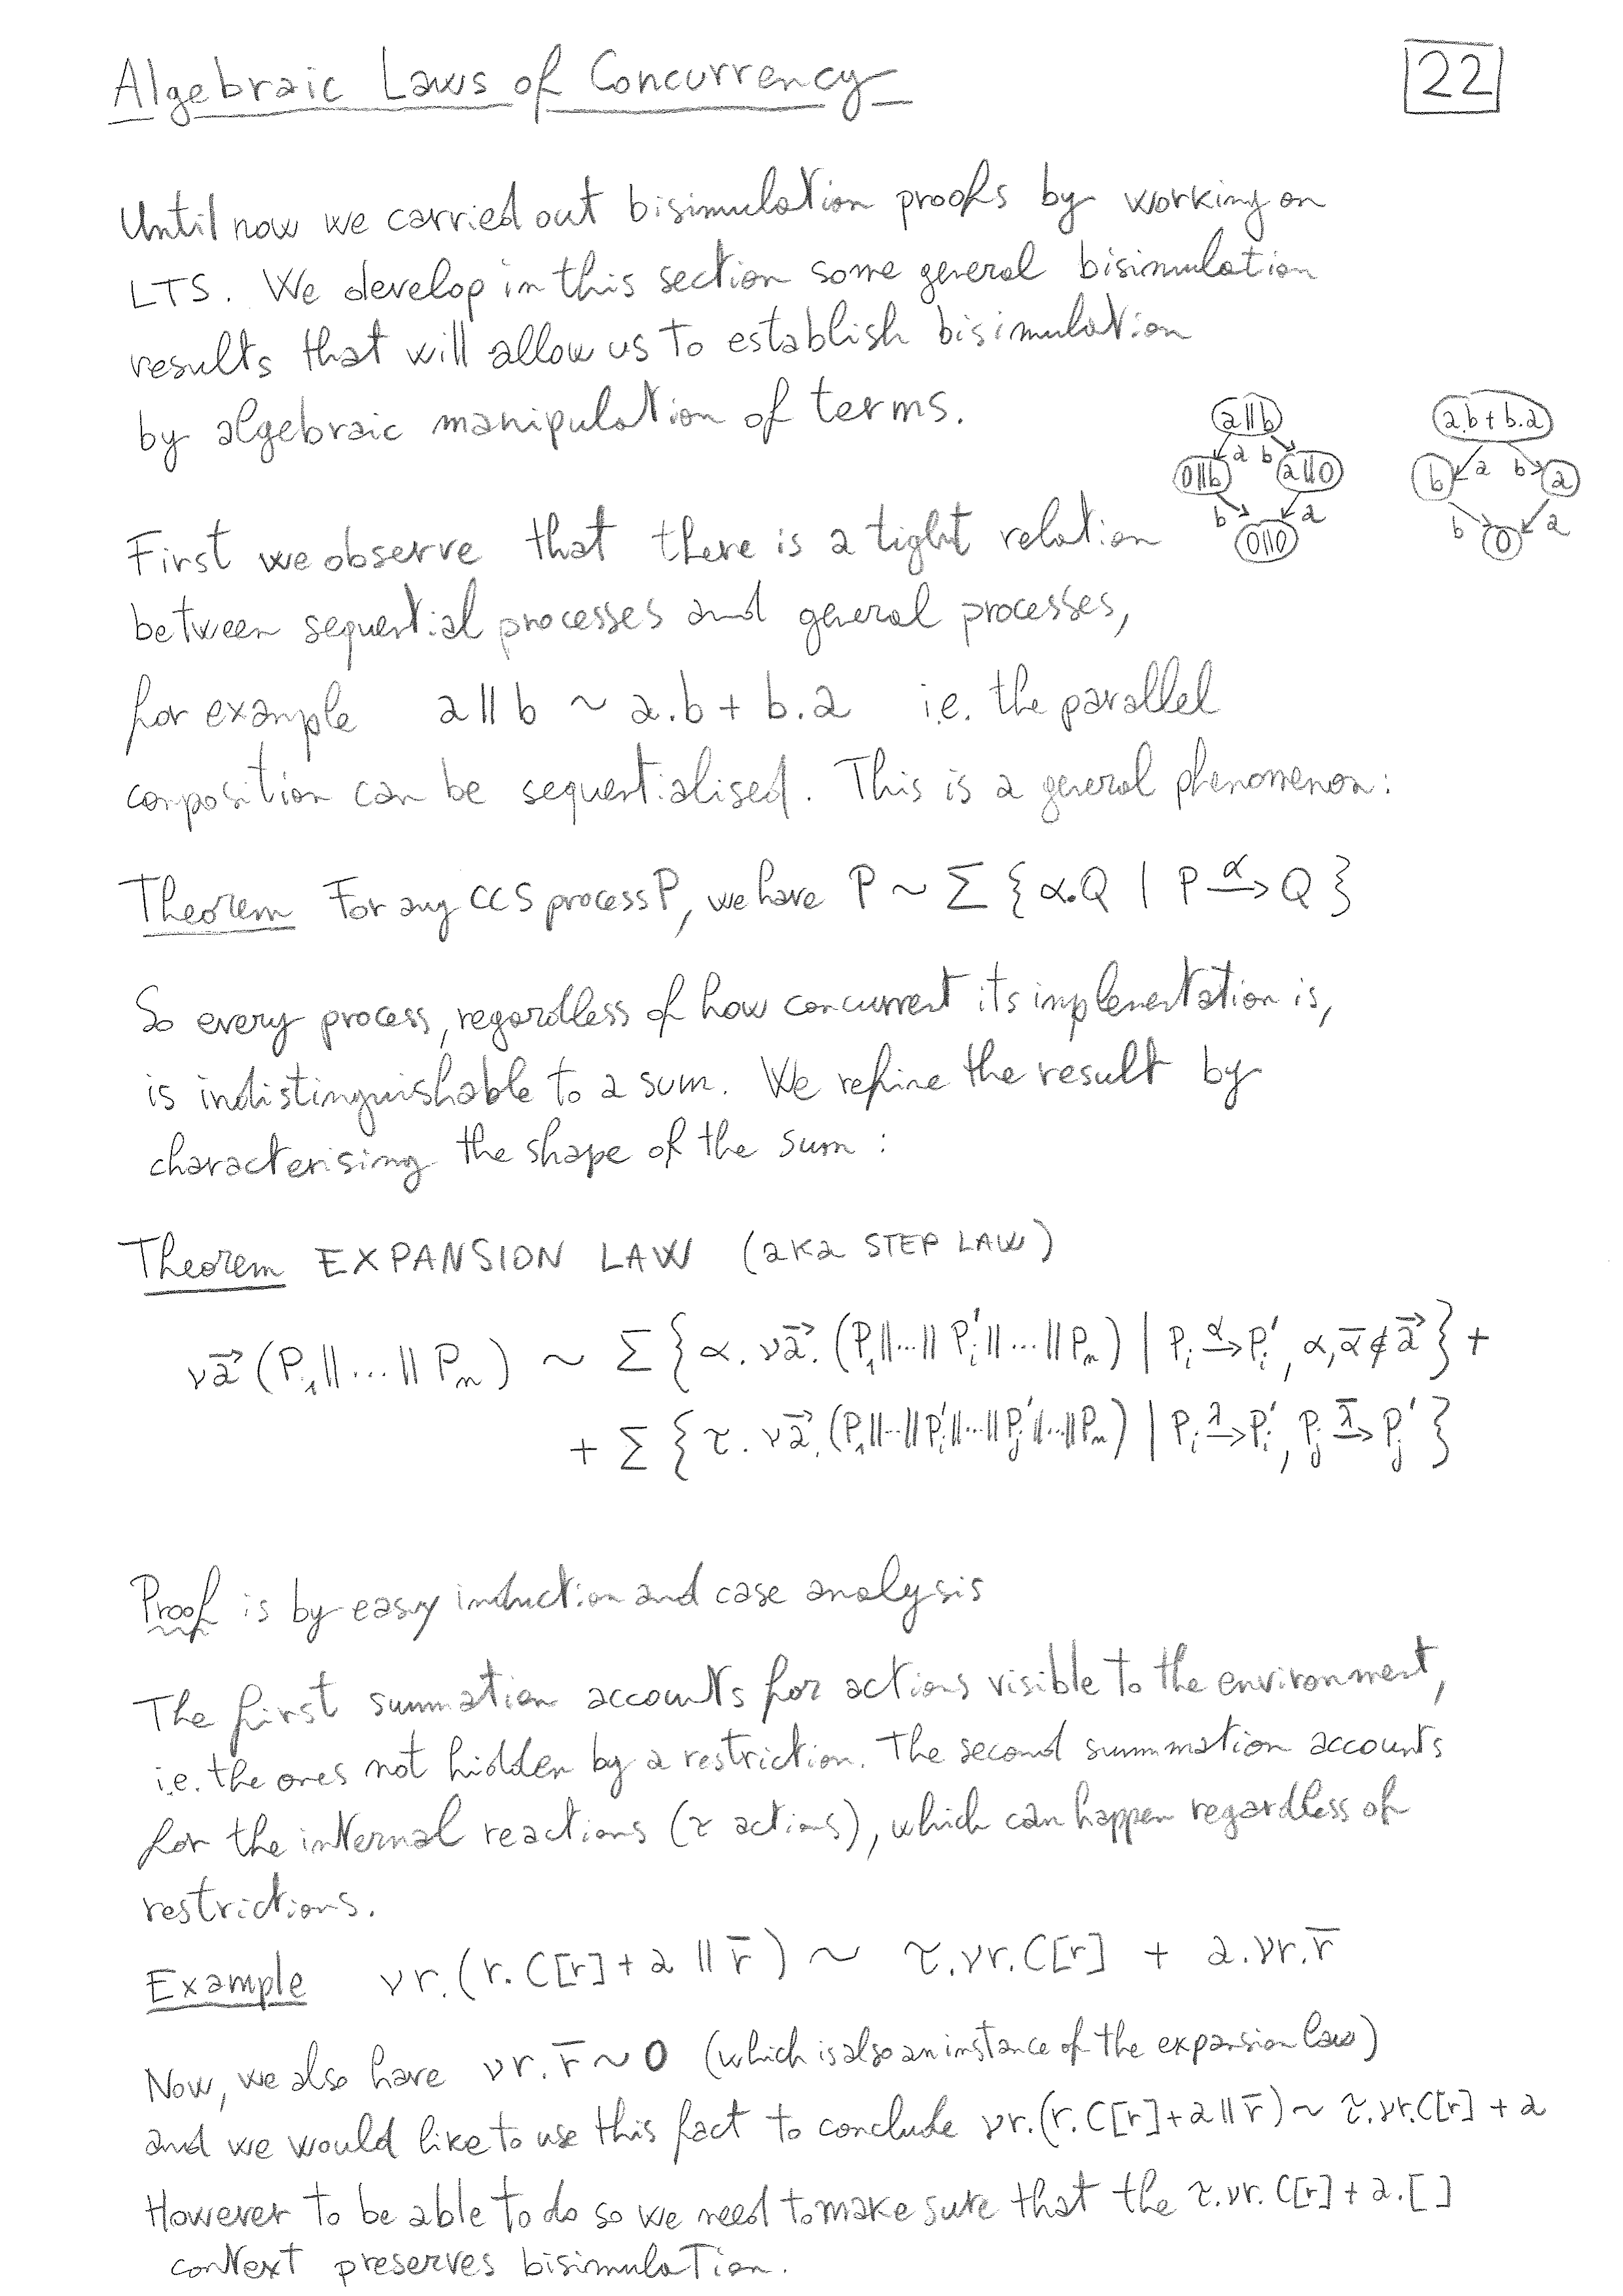 Algebraic Laws of Concurrency
22
Until now we carried out bisimulation proofs by working on
LTS. We develop in this section some general bisimulation
results that will allow us to establish bisimulation
by algebraic manipulation of terms.
a||b
a b
0||b a||0
b a
0||0
a.b + b.a
a b
b a
b a
0
First we observe that there is a tight relation
between sequential processes and general processes,
for example a || b ~ a.b + b.a i.e. the parallel
composition can be sequentialised. This is a general phenomenon:
Theorem For any CCS process P, we have P ~ Σ { α.Q | P –α→ Q }
So every process, regardless of how concurrent its implementation is,
is indistinguishable to a sum. We refine the result by
characterising the shape of the sum :
Theorem EXPANSION LAW (aka STEP LAW)
νa⃗ (P₁||...||Pₙ) ~ Σ { α. νa⃗. (P₁||...||Pᵢ'||...||Pₙ) | Pᵢ –α→ Pᵢ', α, ᾱ ∉ a⃗ } +
+ Σ { τ. νa⃗. (P₁||...||Pᵢ'||...||Pⱼ'||...||Pₙ) | Pᵢ –λ→ Pᵢ', Pⱼ –λ̄→ Pⱼ' }
Proof is by easy induction and case analysis
The first summation accounts for actions visible to the environment,
i.e. the ones not hidden by a restriction. The second summation accounts
for the internal reactions (τ actions), which can happen regardless of
restrictions.
Example νr.(r.C[r] + a || r̄) ~ τ.νr.C[r] + a.νr.r̄
Now, we also have νr.r̄ ~ 0 (which is also an instance of the expansion law)
and we would like to use this fact to conclude νr.(r.C[r]+a || r̄) ~ τ.νr.C[r] + a
However to be able to do so we need to make sure that the τ.νr.C[r] + a.[ ]
context preserves bisimulation.